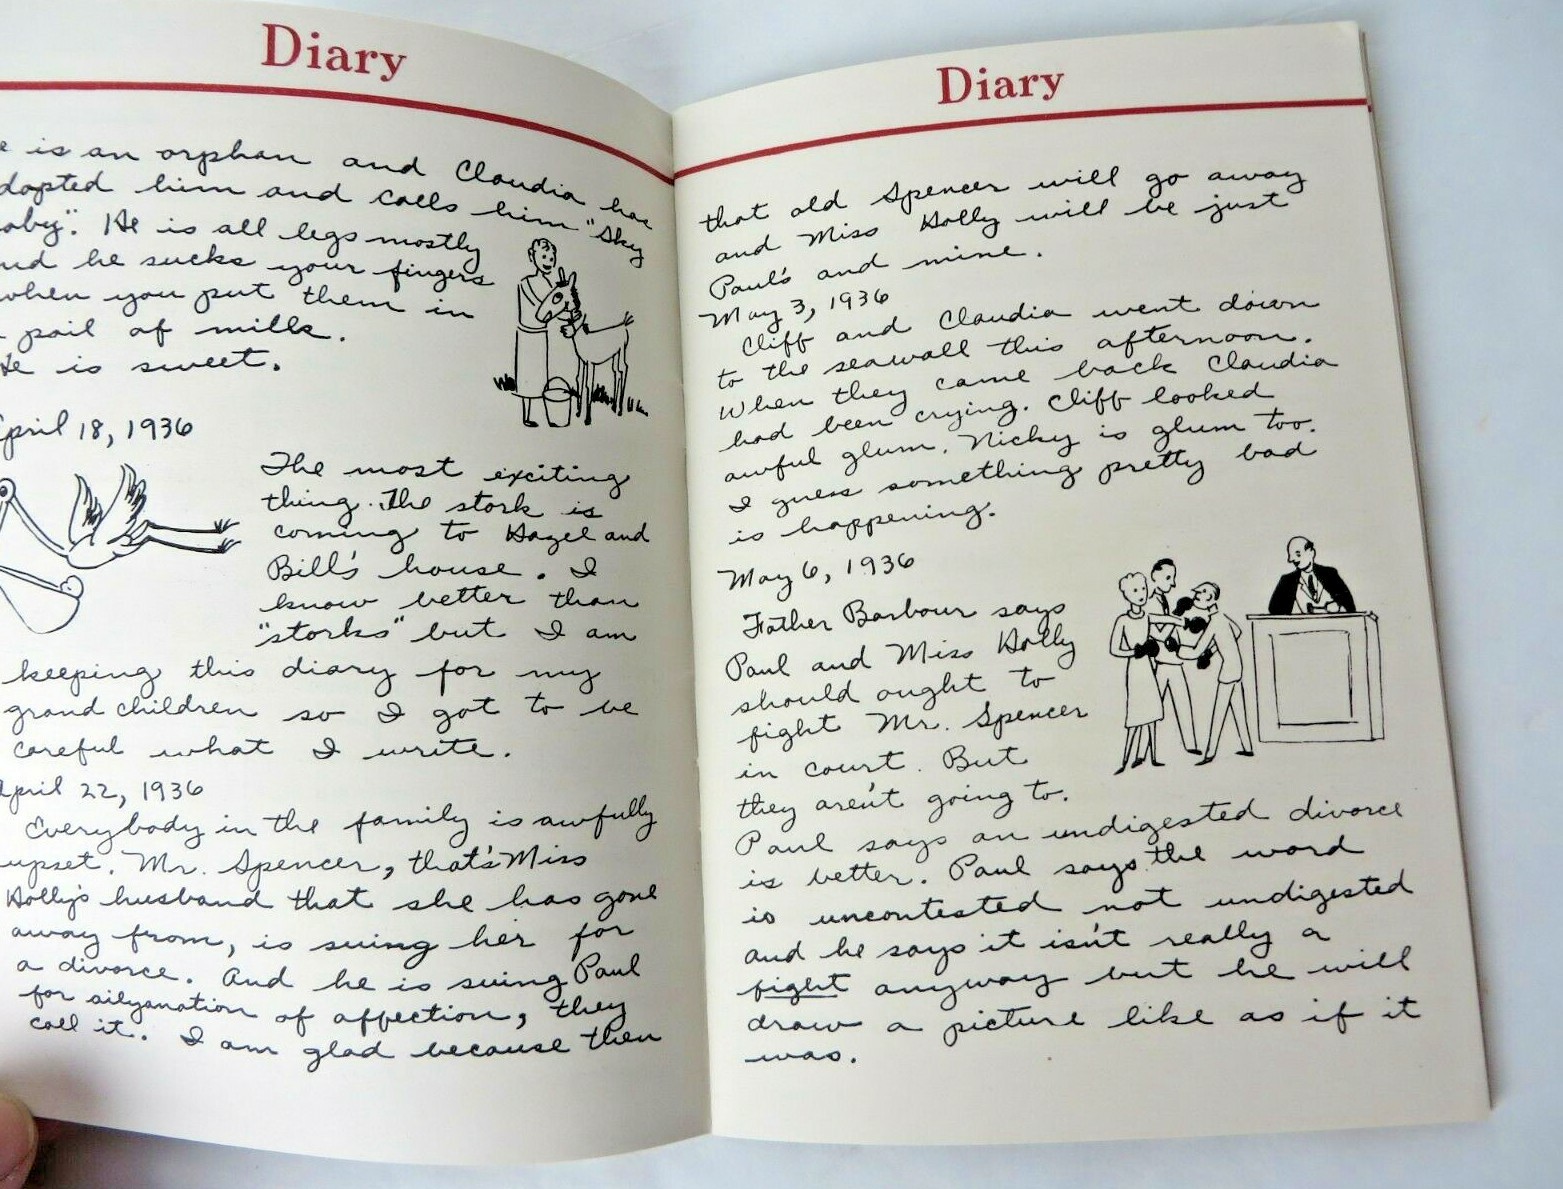 Diary
is an orphan and Claudia has
adopted him and calls him "Sky
Baby". He is all legs mostly
and he sucks your fingers
when you put them in
pail of milk.
He is sweet.
April 18, 1936
The most exciting
thing. The stork is
coming to Hazel and
Bill's house. I
know better than
"storks" but I am
keeping this diary for my
grand children so I got to be
careful what I write.
April 22, 1936
Everybody in the family is awfully
upset. Mr. Spencer, that's Miss
Holly's husband that she has gone
away from, is suing her for
a divorce. And he is suing Paul
for ailyanation of affection, they
call it. I am glad because then
Diary
that old Spencer will go away
and Miss Holly will be just
Paul's and mine.
May 3, 1936
Cliff and Claudia went down
to the seawall this afternoon.
When they came back Claudia
had been crying. Cliff looked
awful glum. Nicky is glum too.
I guess something pretty bad
is happening.
May 6, 1936
Father Barbour says
Paul and Miss Holly
should ought to
fight Mr. Spencer
in court. But
they aren't going to.
Paul says an undigested divorce
is better. Paul says the word
is uncontested not undigested
and he says it isn't really a
fight anyway but he will
draw a picture like as if it
was.